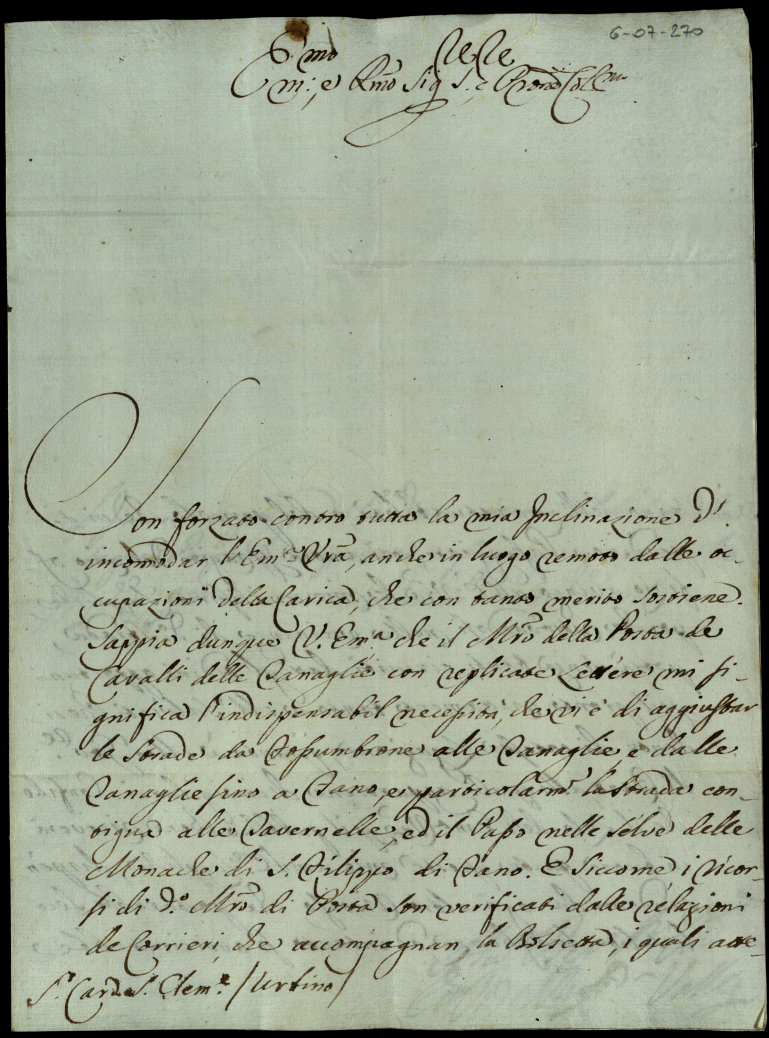 6-07-270
Em̃o e Rm̃o Sig.r S.r e Pron̄e Coll.mo
Son forzato contro tutta la mia Inclinazione d'
incomodar l'Em.a Vr̃a, anche in luogo remoto dalle oc-
cupazioni della Carica, che con tanto merito sostiene.
Sappia dunque V. Em.a che il Mr̃o della Posta de
Cavalli delle Tanaglie con replicate Lettere mi si-
gnifica l'indispensabil necessità, che vi è di aggiustar
le Strade da Fossumbrone alle Tanaglie, e dalle
Tanaglie sino a Fano, e particolarm.e la strada con-
tigua alle Tavernelle, ed il Passo nelle selve delle
Monache di S. Filippo di Fano. E siccome i ricor-
si di d.o Mr̃o di Posta son verificati dalle relazioni
de Corrieri, che accompagnan, la Bolsetta, i quali atte-
S.r Card.e S. Clem.te / Urbino /